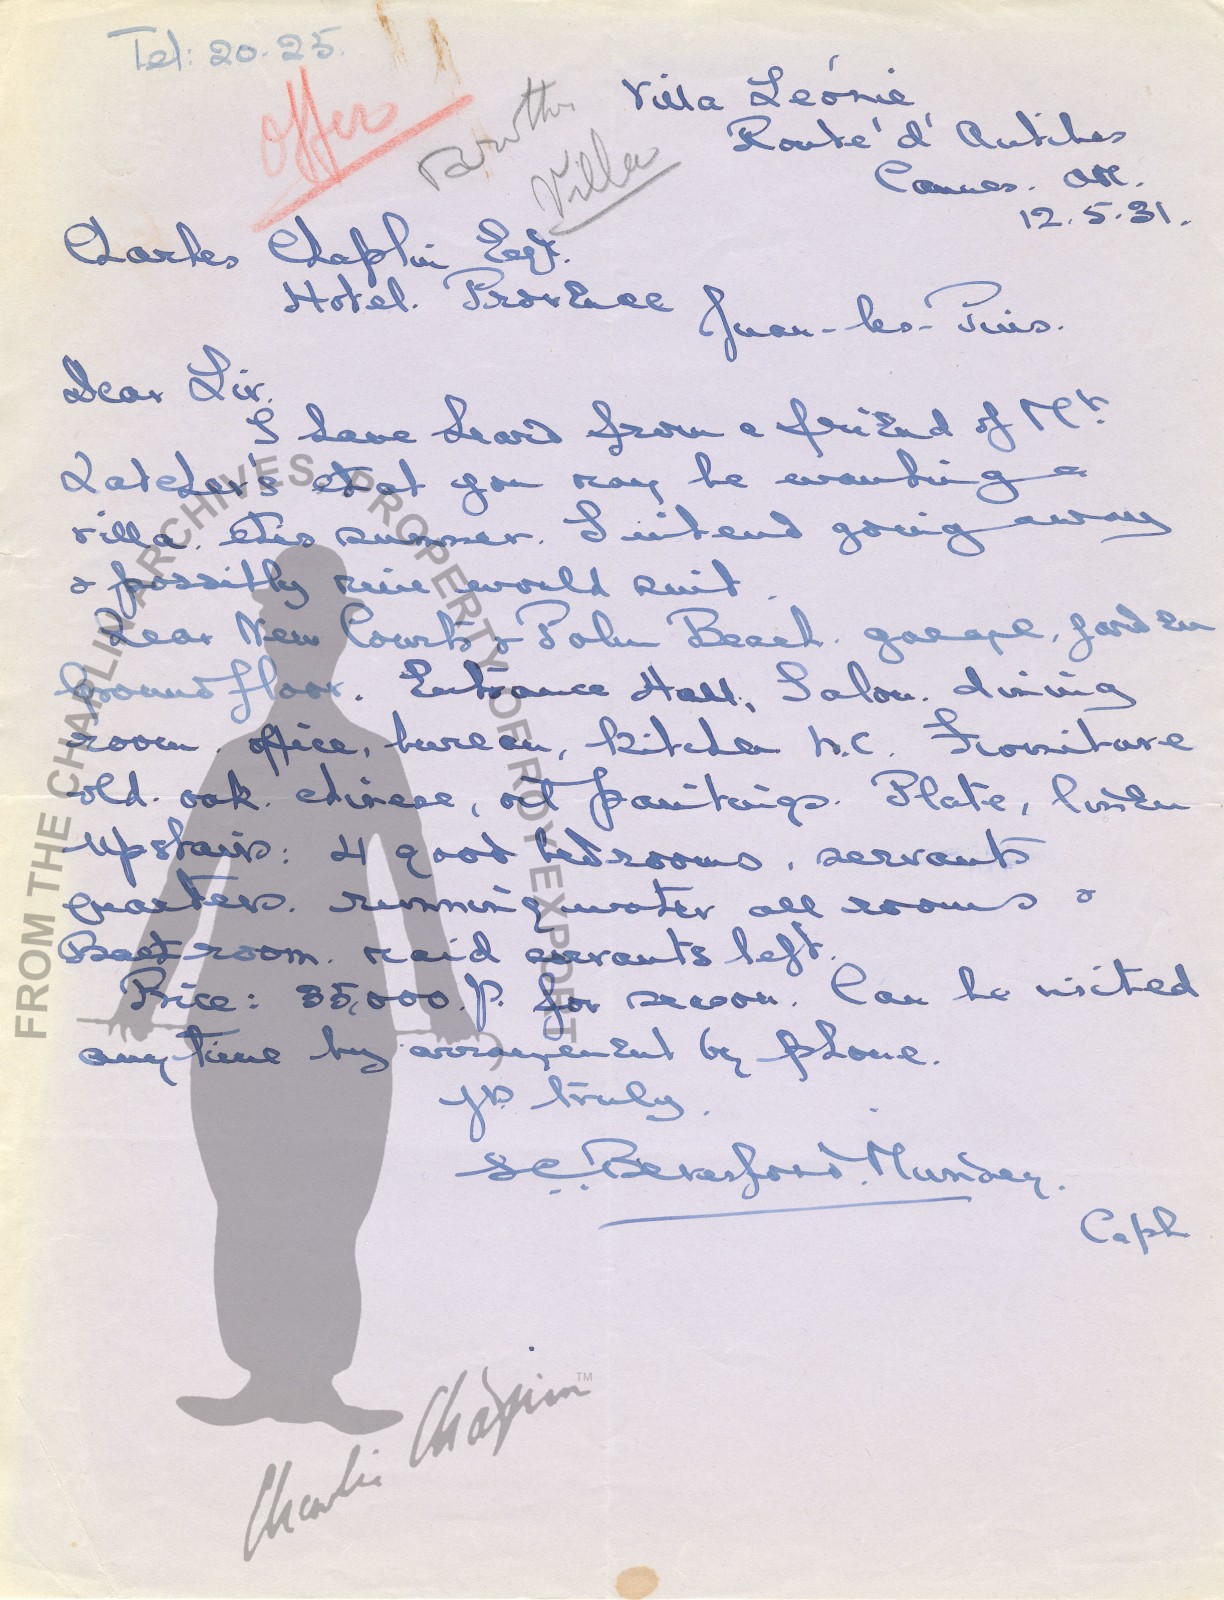 Tel: 20.25.
offers
Villas
Villa Léonie
Route d'Antibes
Cannes. AM.
12.5.31.
Charles Chaplin Esq.
Hotel. Provence
Juan-les-Pins.
Dear Sir.
I have heard from a friend of Mr.
that you may be wanting a
villa this summer. I intend going away
& possibly mine would suit.
Near New Courts & Palm Beach. garage, garden
Ground floor. Entrance Hall, Salon. dining
room. office, bureau, kitchen W.C. Furniture
old. oak. chinese, oil paintings. Plate, linen
Upstairs: 4 good bedrooms, servants
quarters. running water all rooms &
Bathroom. maid servants left.
Price: 35,000.f. for season. Can be visited
anytime by arrangement by phone.
yrs. truly.
Beresford. Mundey.
Capt
FROM THE CHAPLIN ARCHIVES. PROPERTY OF ROY EXPORT
Charlie Chaplin™